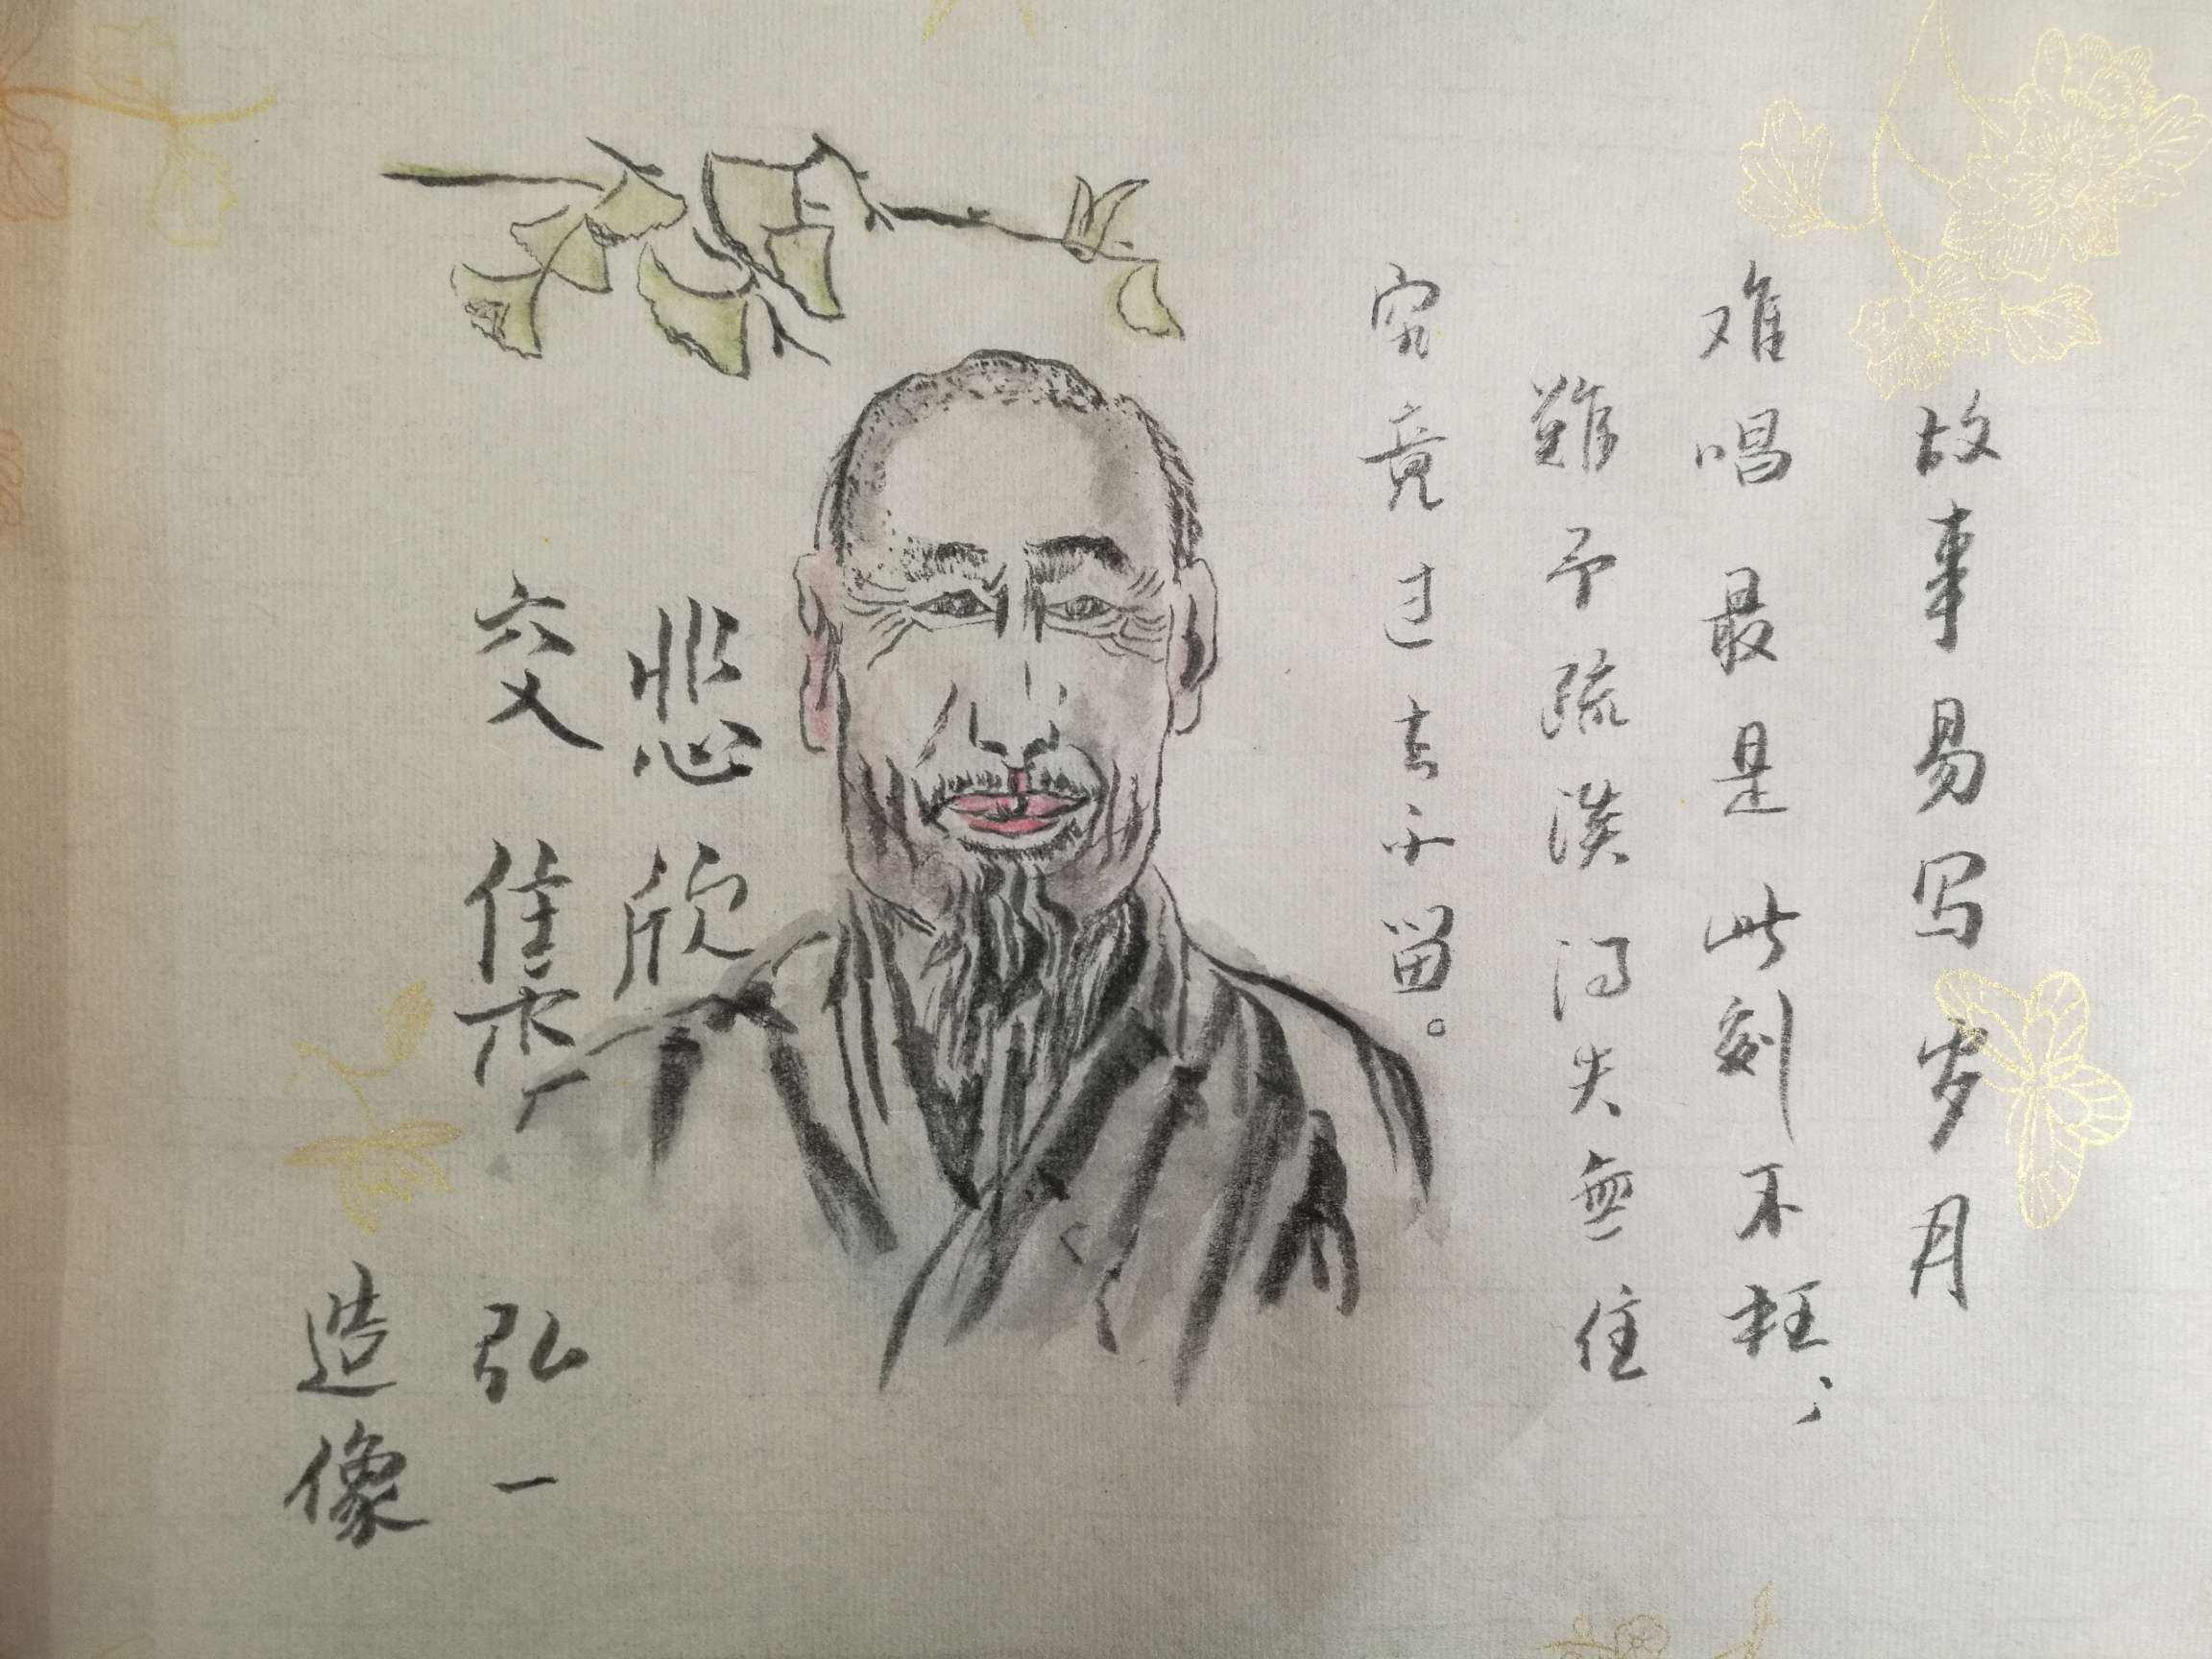 故事易写岁月
难唱最是此刻不枉；
難予疏淡得失無住
究竟过去不留。
悲欣
交集
弘一
造像